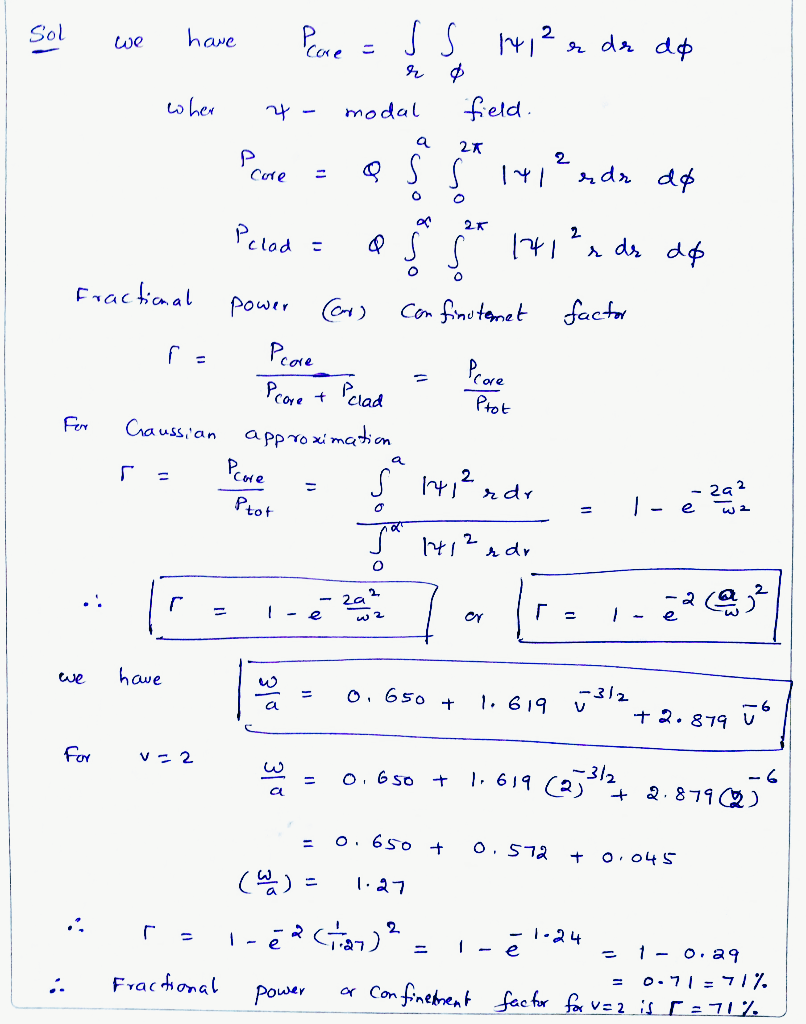 Sol we have P_core = ∫_r ∫_φ |ψ|² r dr dφ
wher ψ - modal field.
P_core = Q ∫_0^a ∫_0^2π |ψ|² r dr dφ
P_clad = Q ∫_0^α ∫_0^2π |ψ|² r dr dφ
Fractional power (or) confinutemet factor
Γ = P_core / (P_core + P_clad) = P_core / P_tot
For Gaussian approximation
Γ = P_core / P_tot = ∫_0^a |ψ|² r dr / ∫_0^α |ψ|² r dr = 1 - e^(-2a²/w²)
∴ Γ = 1 - e^(-2a²/w²) or Γ = 1 - e^(-2(a/w)²)
we have w/a = 0.650 + 1.619 v^(-3/2) + 2.879 v^(-6)
For v = 2 w/a = 0.650 + 1.619 (2)^(-3/2) + 2.879 (2)^(-6)
= 0.650 + 0.572 + 0.045
(w/a) = 1.27
∴ Γ = 1 - e^(-2(1/1.27)²) = 1 - e^(-1.24) = 1 - 0.29
= 0.71 = 71%
∴ Fractional power or confinement factor for v=2 is Γ = 71%